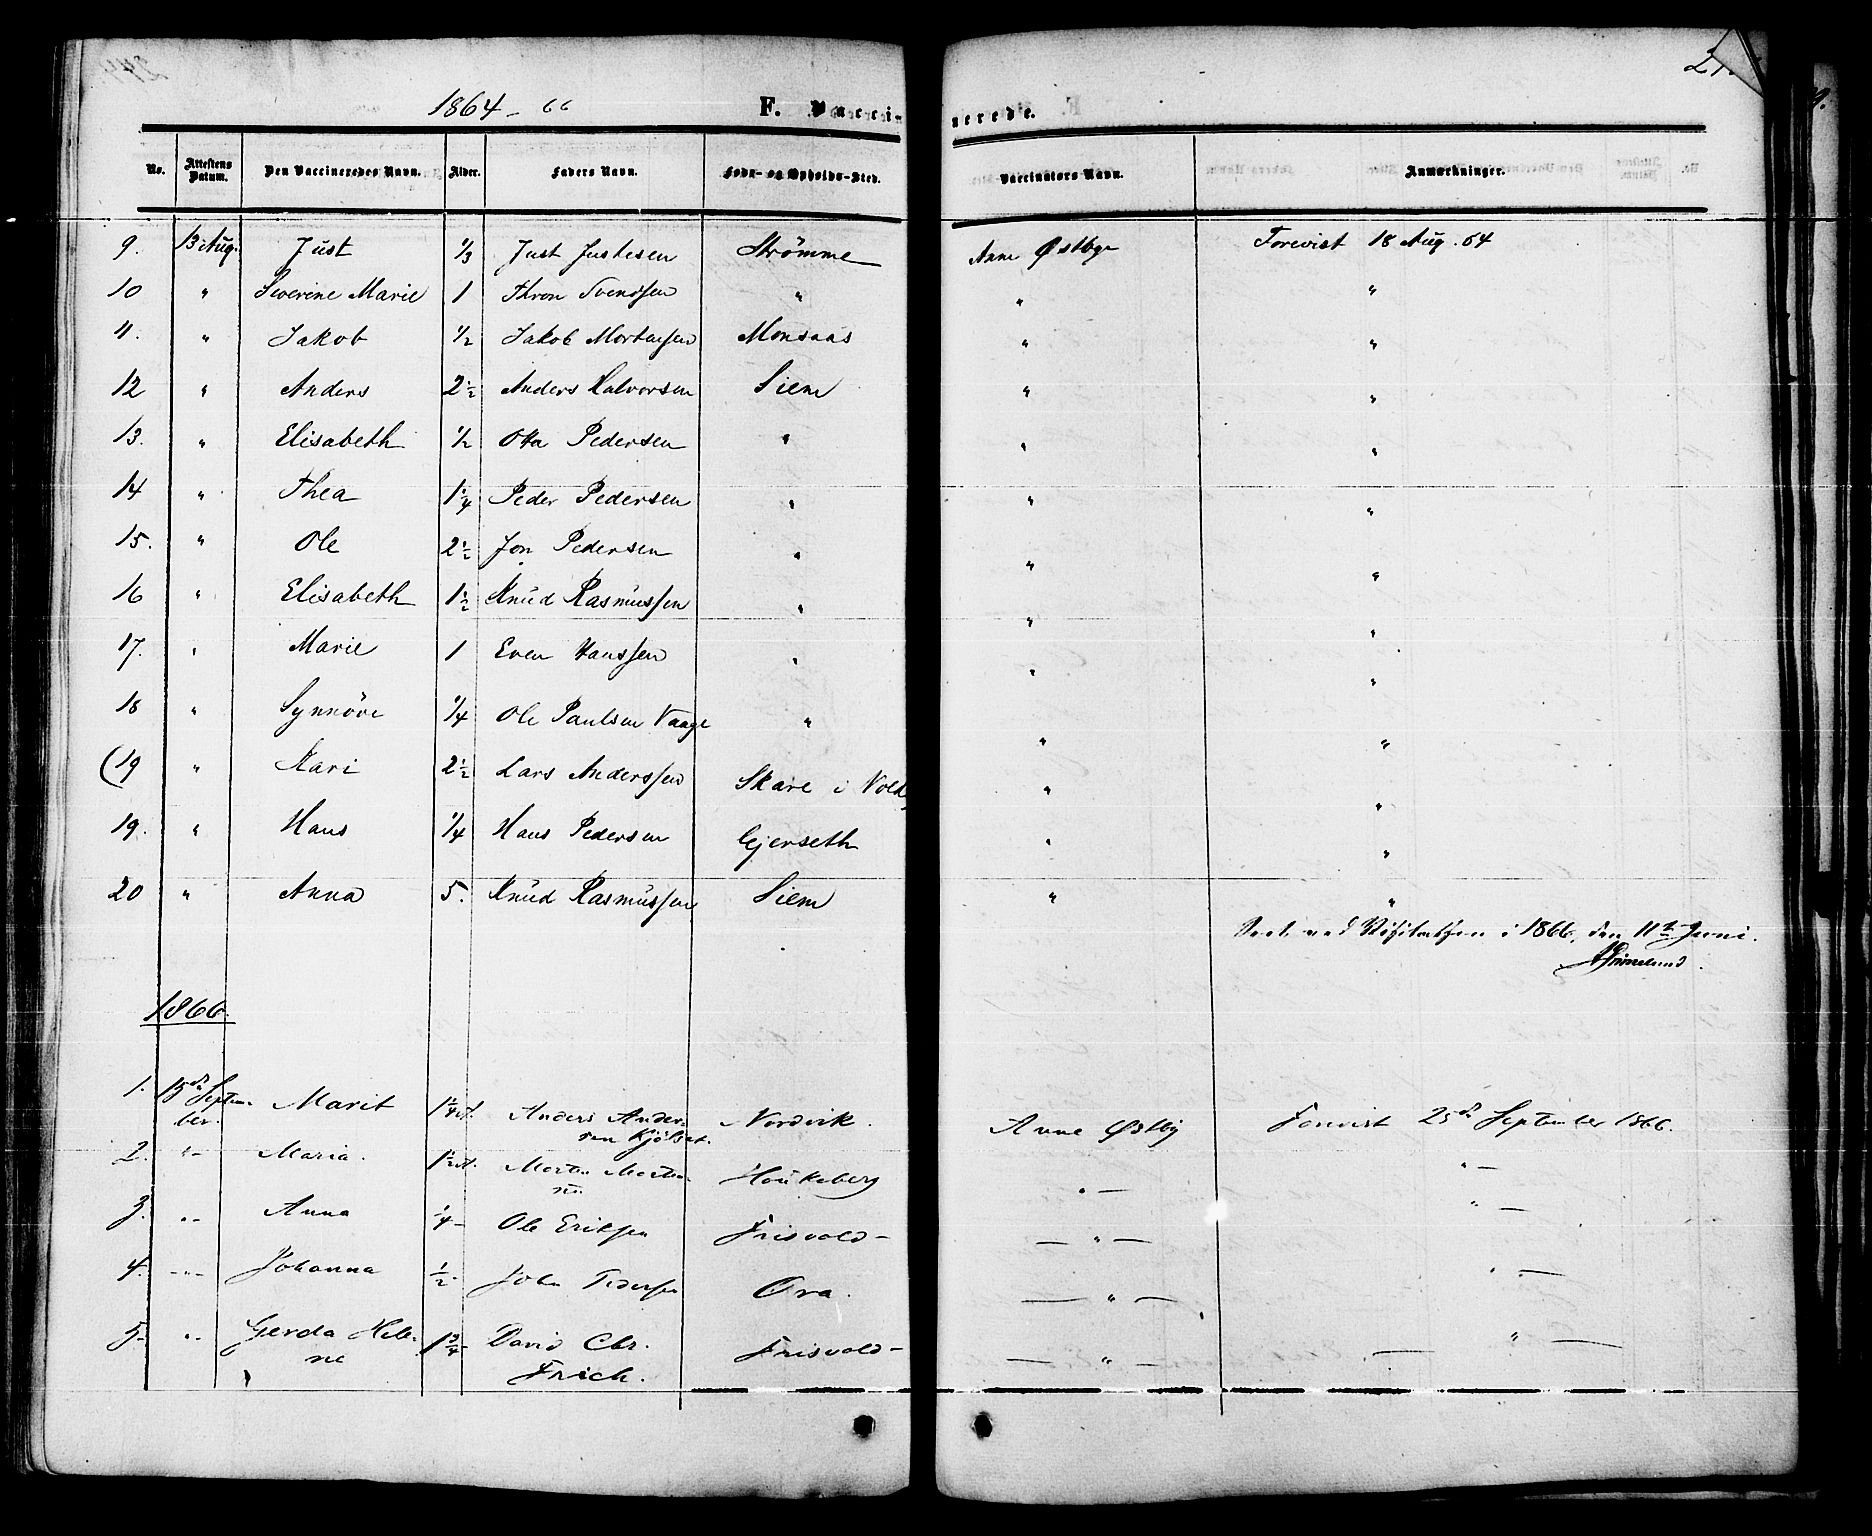 1864-66 F. Vaccinerede.
No. Attestens Datum. Den Vaccineredes Navn. Alder. Faders Navn. Føde- og Opholds-Sted. Vaccinators Navn. Anmærkninger.
9. 13 Aug. Just 1/3 Just Justesen Strömme Anne Østbye Forevist 18 Aug. 64
10 " Severine Marie 1 Thron Svendsen " " "
11. " Jakob 1/2 Jakob Mortensen Monsaas " "
12 " Anders 2 1/2 Anders Halvorsen Siem " "
13. " Elisabeth 1/2 Ola Pedersen " " "
14 " Thea 1 1/4 Peder Pedersen " " "
15. " Ole 2 1/2 Jon Pedersen " " "
16 " Elisabeth 1 1/2 Knud Rasmussen " " "
17. " Marie 1 Even Hanssen " " "
18 " Synnöve 1/4 Ole Paulsen Vaage " " "
(19 " Kari 2 1/2 Lars Anderssen Skare i Vold " "
19. " Hans 1/4 Hans Pedersen Gjerseth " "
20 " Anna 5. Knud Rasmussen Siem " "
Seet ved i 1866, den 11te Juni.
1866
1. 15de September Marit 1 1/4 Anders Andersen Nordvik. Anne Østby Forevist 25de September 1866.
2. " Maria. 1 1/2 Morten Mortensen Haukeberg " "
3. " Anna 1/4 Ole Eriksen Frisvold " "
4. " Johanna 1/2 John Pedersen Øra. " "
5. " Gerda Helene 1 3/4 David Chr. Frich. Frisvold " "